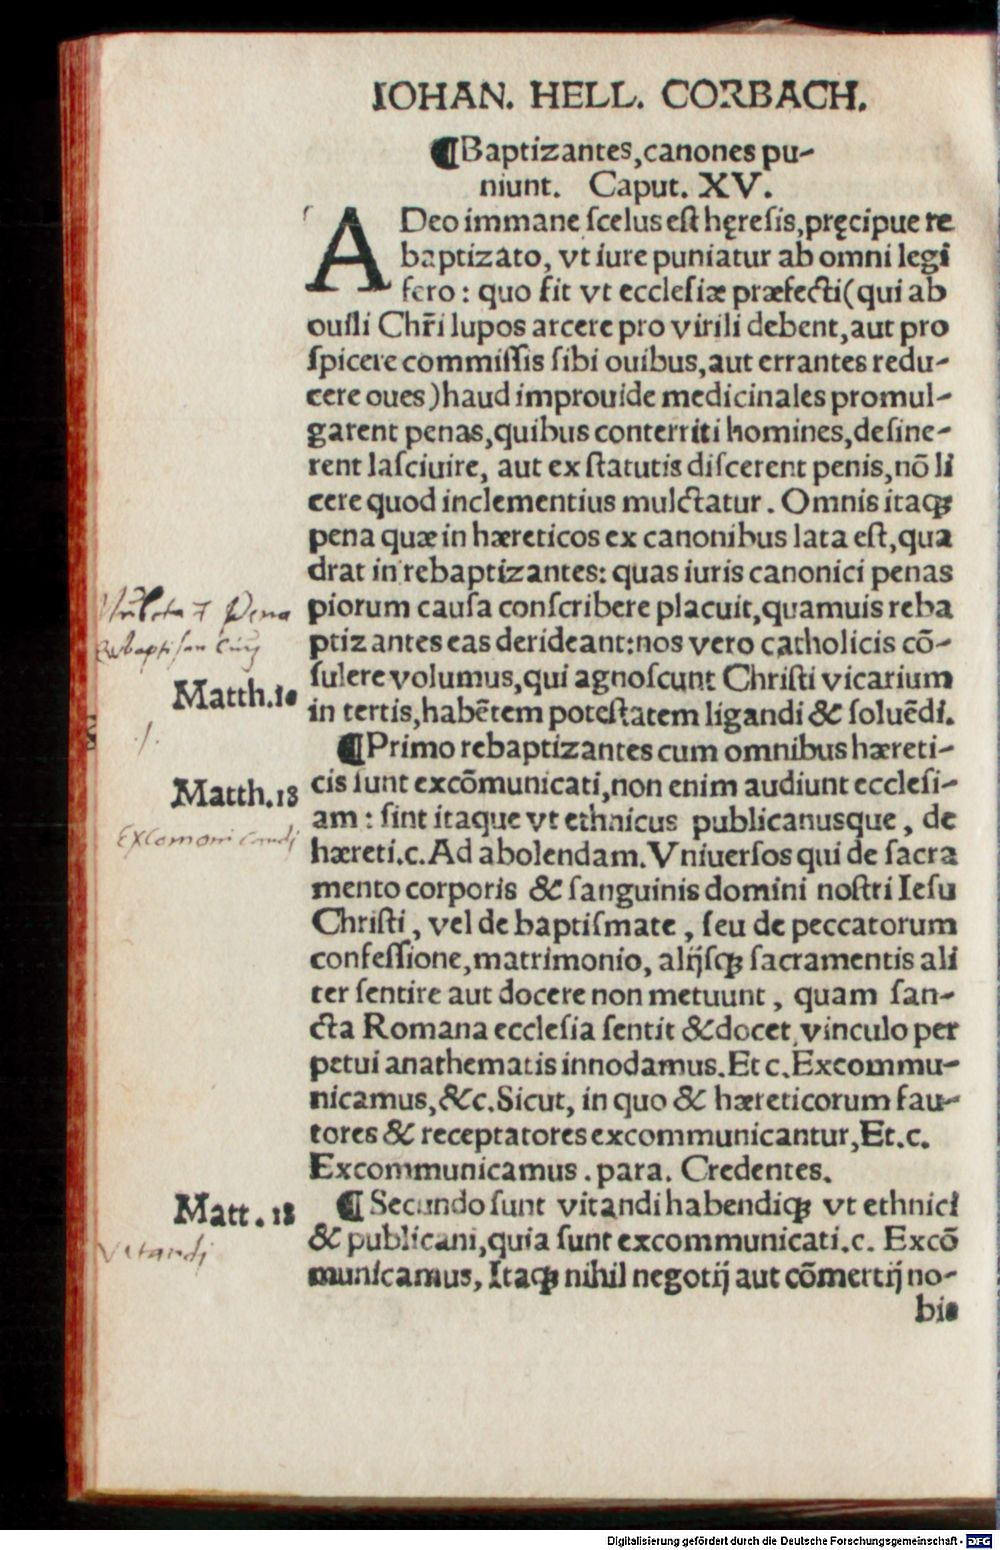 IOHAN. HELL. CORBACH.
¶Baptizantes,canones pu-
niunt. Caput. XV.
ADeo immane ſcelus eſt hęreſis,pręcipue re
baptizato, vt iure puniatur ab omni legi
fero : quo fit vt eccleſiæ præfecti(qui ab
ouili Chr̃i lupos arcere pro virili debent,aut pro
ſpicere commiſſis ſibi ouibus,aut errantes redu-
cere oues)haud improuide medicinales promul-
garent penas,quibus conterriti homines,deſine-
rent laſciuire, aut ex ſtatutis diſcerent penis,nõ li
cere quod inclementius mulctatur. Omnis itaqꝫ
pena quæ in hæreticos ex canonibus lata eſt,qua
drat in rebaptizantes: quas iuris canonici penas
piorum cauſa conſcribere placuit,quamuis reba
ptizantes eas derideant:nos vero catholicis cõ-
ſulere volumus,qui agnoſcunt Chriſti vicarium
Matth.10
in tertis,habẽtem poteſtatem ligandi & ſoluẽdi.
¶Primo rebaptizantes cum omnibus hæreti-
Matth.18
cis ſunt excõmunicati,non enim audiunt eccleſi-
am : ſint itaque vt ethnicus publicanusque, de
hæreti.c.Ad abolendam.Vniuerſos qui de ſacra
mento corporis & ſanguinis domini noſtri Ieſu
Chriſti, vel de baptiſmate, ſeu de peccatorum
confeſſione,matrimonio, alijſqꝫ ſacramentis ali
ter ſentire aut docere non metuunt, quam ſan-
cta Romana eccleſia ſentit &docet, vinculo per
petui anathematis innodamus.Et c.Excommu-
nicamus,&c.Sicut, in quo & hæreticorum fau-
tores & receptatores excommunicantur,Et.c.
Excommunicamus. para. Credentes.
Matt. 18
¶ Secundo ſunt vitandi habendiqꝫ vt ethnici
Vitandj
& publicani,quia ſunt excommunicati.c. Excõ
municamus, Itaqꝫ nihil negotij aut cõmertij no-
bis
Digitalisierung gefördert durch die Deutsche Forschungsgemeinschaft - DFG